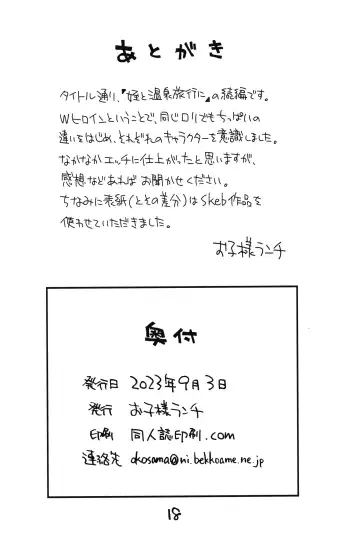 あとがき
タイトル通り、『姪と温泉旅行に』の続編です。
Wヒロインということで、同じロリでもちっぱいの
違いをはじめ、それぞれのキャラクターを意識しました。
なかなかエッチに仕上がったと思いますが、
感想などあれば お聞かせください。
ちなみに表紙(とその差分)はSkeb作品を
使わせていただきました。
お子様ランチ
奥付
発行日 2023年9月3日
発行 お子様ランチ
印刷 同人誌印刷.com
連絡先 okosama@ni.bekkoame.ne.jp
18